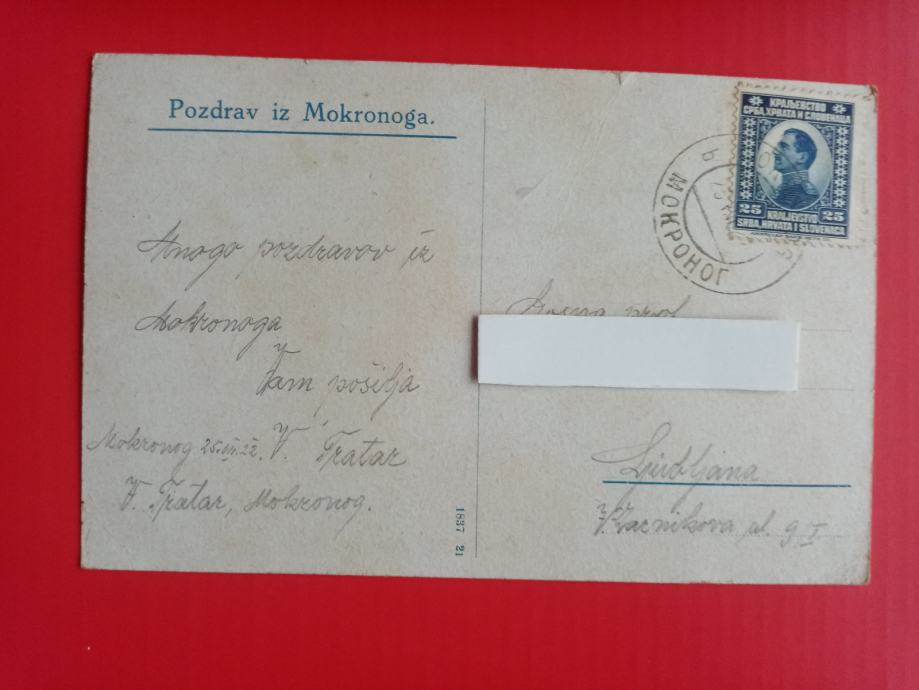 Pozdrav iz Mokronoga.
Mnogo pozdravov iz
Mokronoga
Vam pošilja
Mokronog 25.III.22. V. Tratar
V. Tratar, Mokronog.
1837 21
КРАЉЕВСТВО
СРБА, ХРВАТА И СЛОВЕНАЦА
25 KRALJEVSTVO 25
SRBA, HRVATA I SLOVENACA
МОКРОНОГ
b
Ljubljana
ul. 9 I